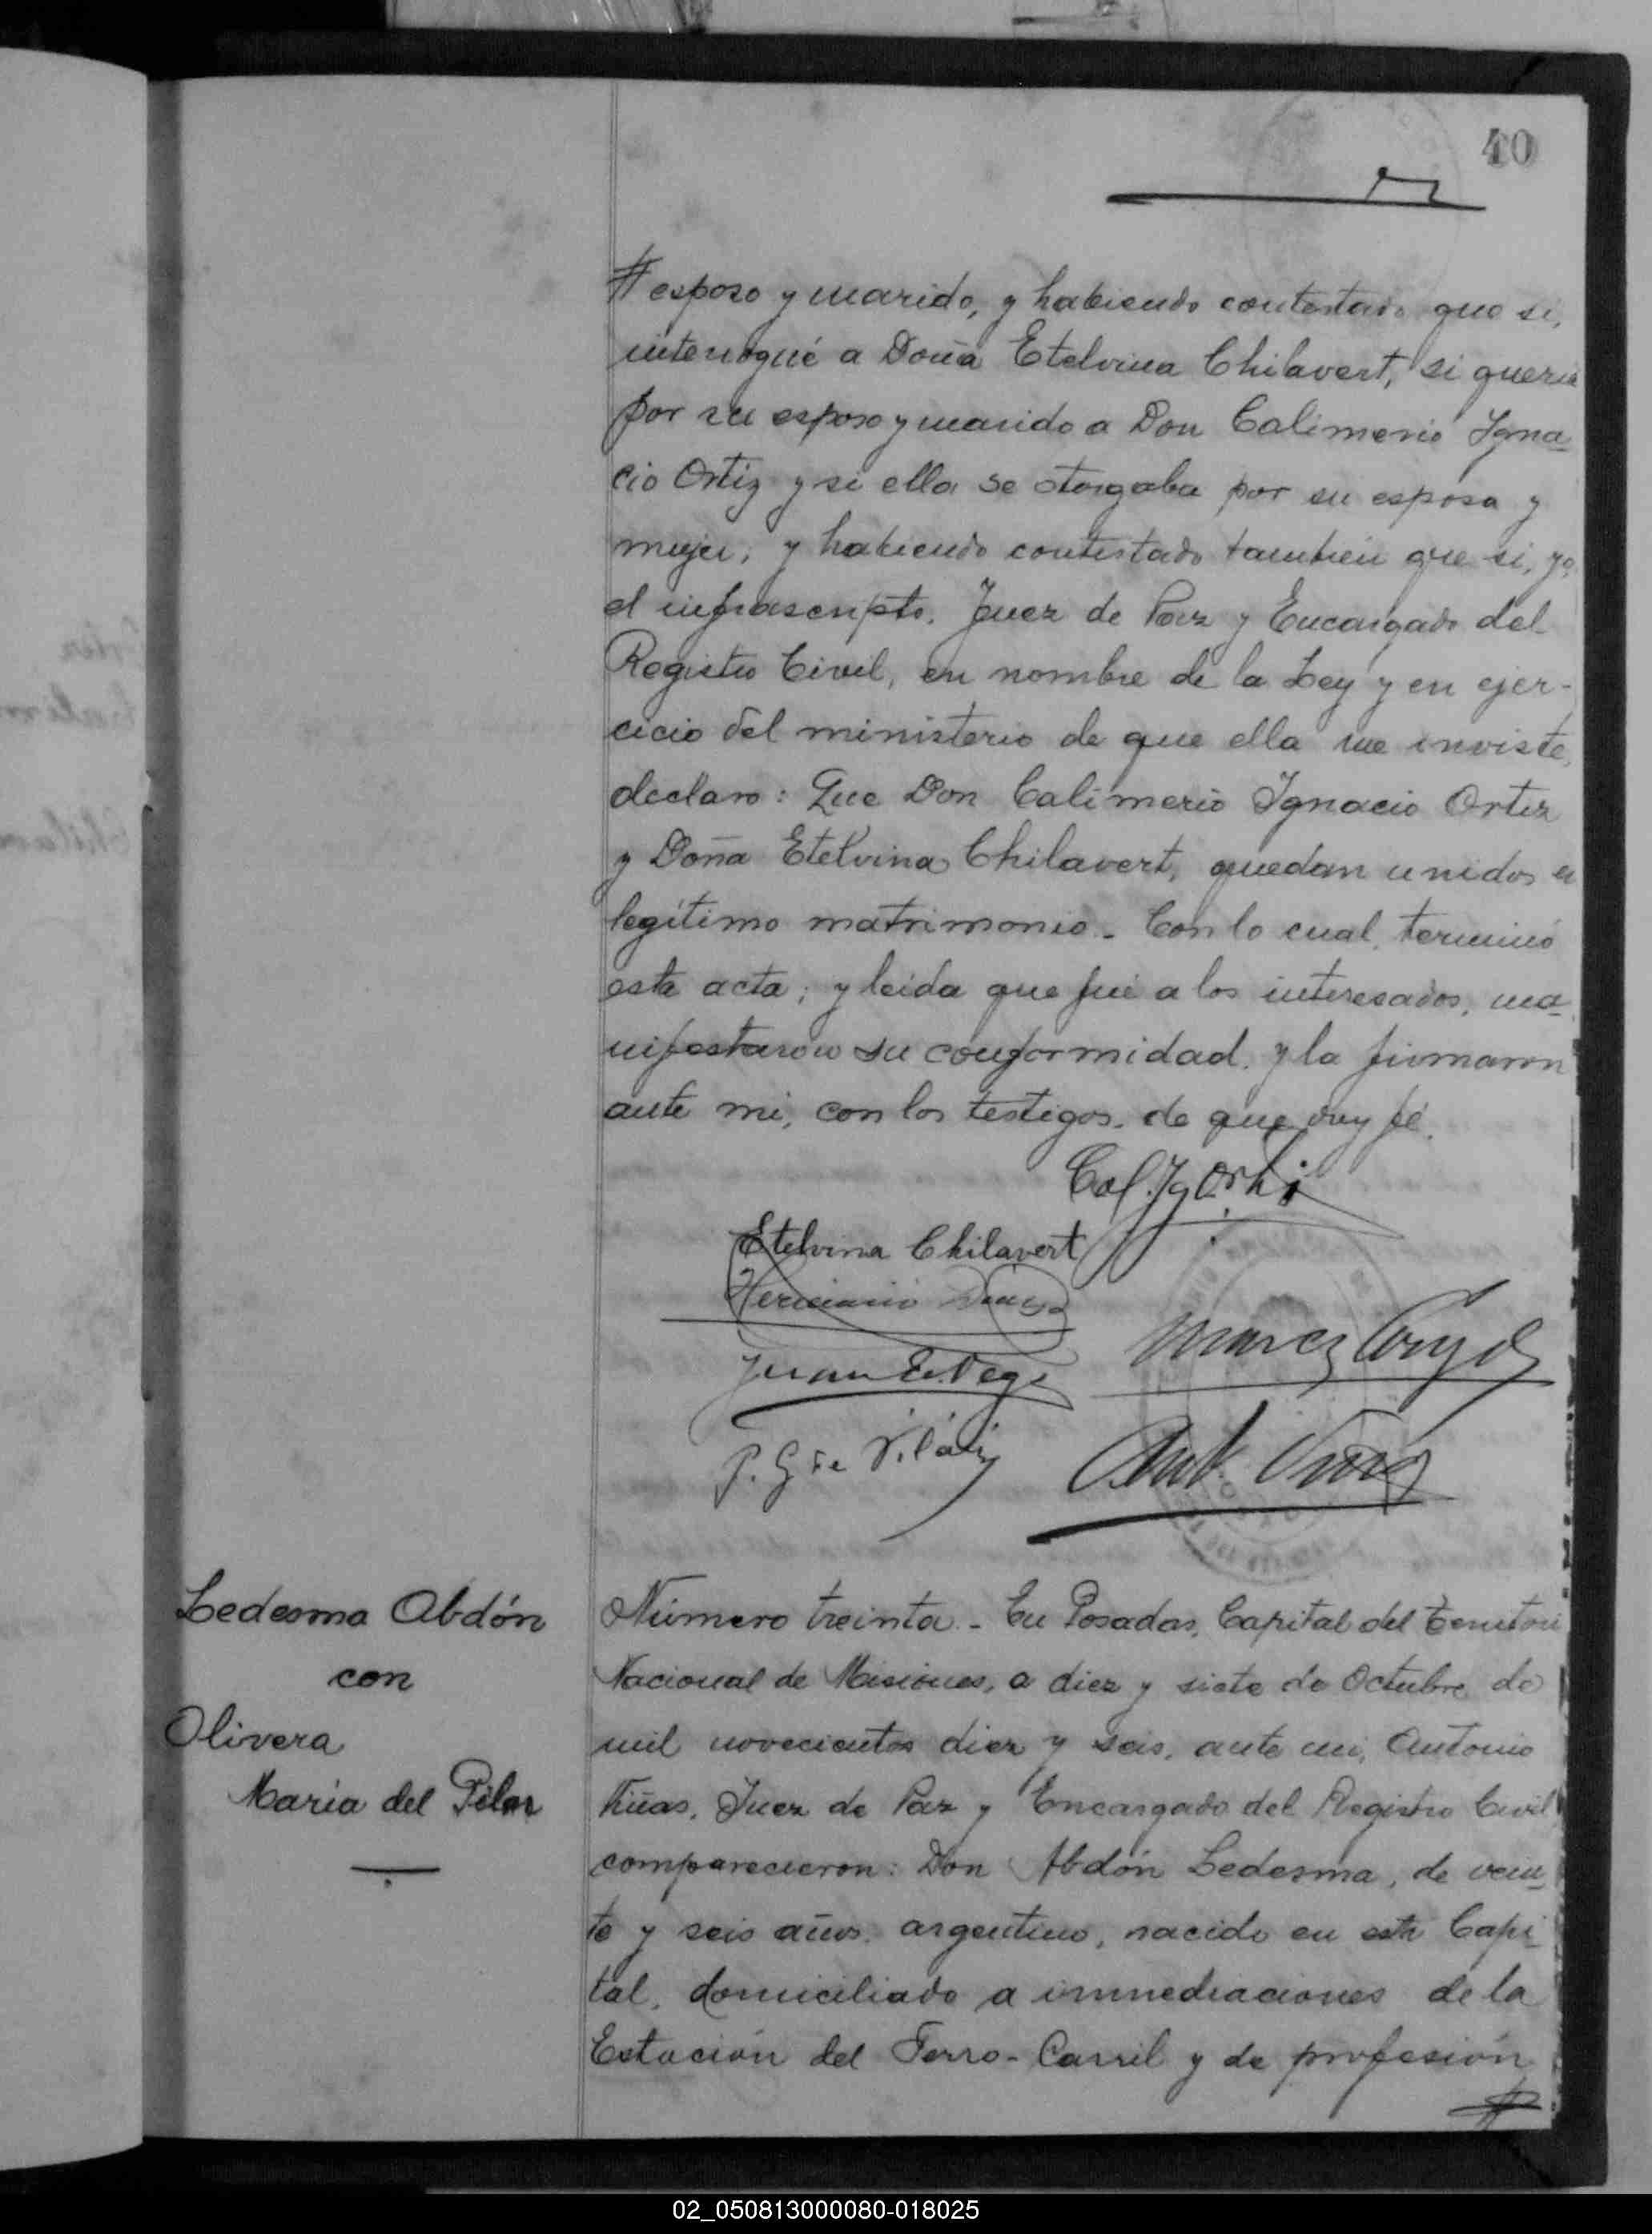 40
esposo y marido, y habiendo contestado que si,
interrogué a Doña Etelvina Chilavert, si queria
por su esposo y marido a Don Calimerio Igna
cio Ortiz y si ella se otorgaba por su esposa y
mujer; y habiendo contestado tambien que si, yo,
el infrascripto, Juez de Paz y Encargado del
Registro Civil, en nombre de la Ley y en ejer-
cicio del ministerio de que ella me inviste,
declaro: Que Don Calimerio Ignacio Ortiz
y Doña Etelvina Chilavert, quedan unidos en
legítimo matrimonio. Con lo cual terminó
esta acta; y leida que fué a los interesados, ma
nifestaron su conformidad y la firmaron
ante mi, con los testigos, de que doy fé.
Cal. Ig.
Etelvina Chilavert
Juan
Ledesma Abdón
con
Olivera
María del Pilar
Número treinta - En Posadas, Capital del Territorio
Nacional de Misiones, a diez y siete de Octubre de
mil novecientos diez y seis, ante mi, Antonio
Juez de Paz y Encargado del Registro Civil
comparecieron: Don Abdón Ledesma, de vein
te y seis años, argentino, nacido en esta Capi
tal, domiciliado a inmediaciones de la
Estación del Ferro-Carril y de profesión
02_050813000080-018025